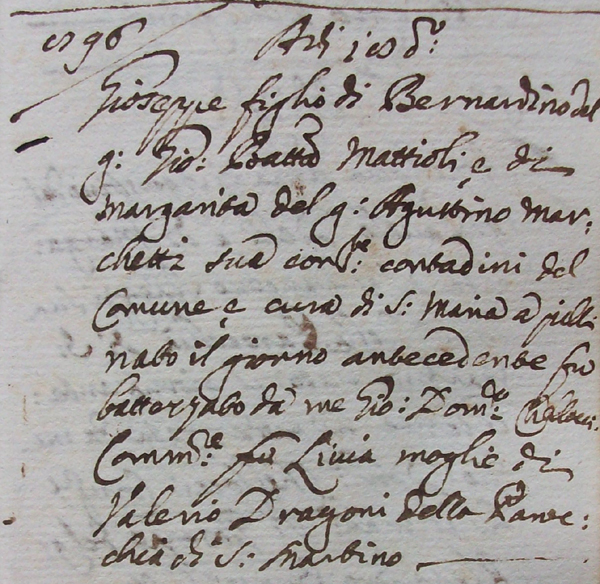 1796 Adi 10 do:
Gioseppe figlio di Bernardino del
q: Gio: Batta Mattioli, e di
Margarita del q: Agustino Mar:
chetti sua conste: contadini del
Comune e cura di S: Maria a
nato il giorno antecedente fu
battezzato da me Gio: Domco:
Commre: fu Livia moglie di
Valerio Dragoni della Paroc:
chia di S: Martino